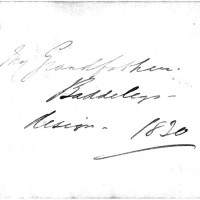 My Grandfather.
Baddeleys -
design - 1830